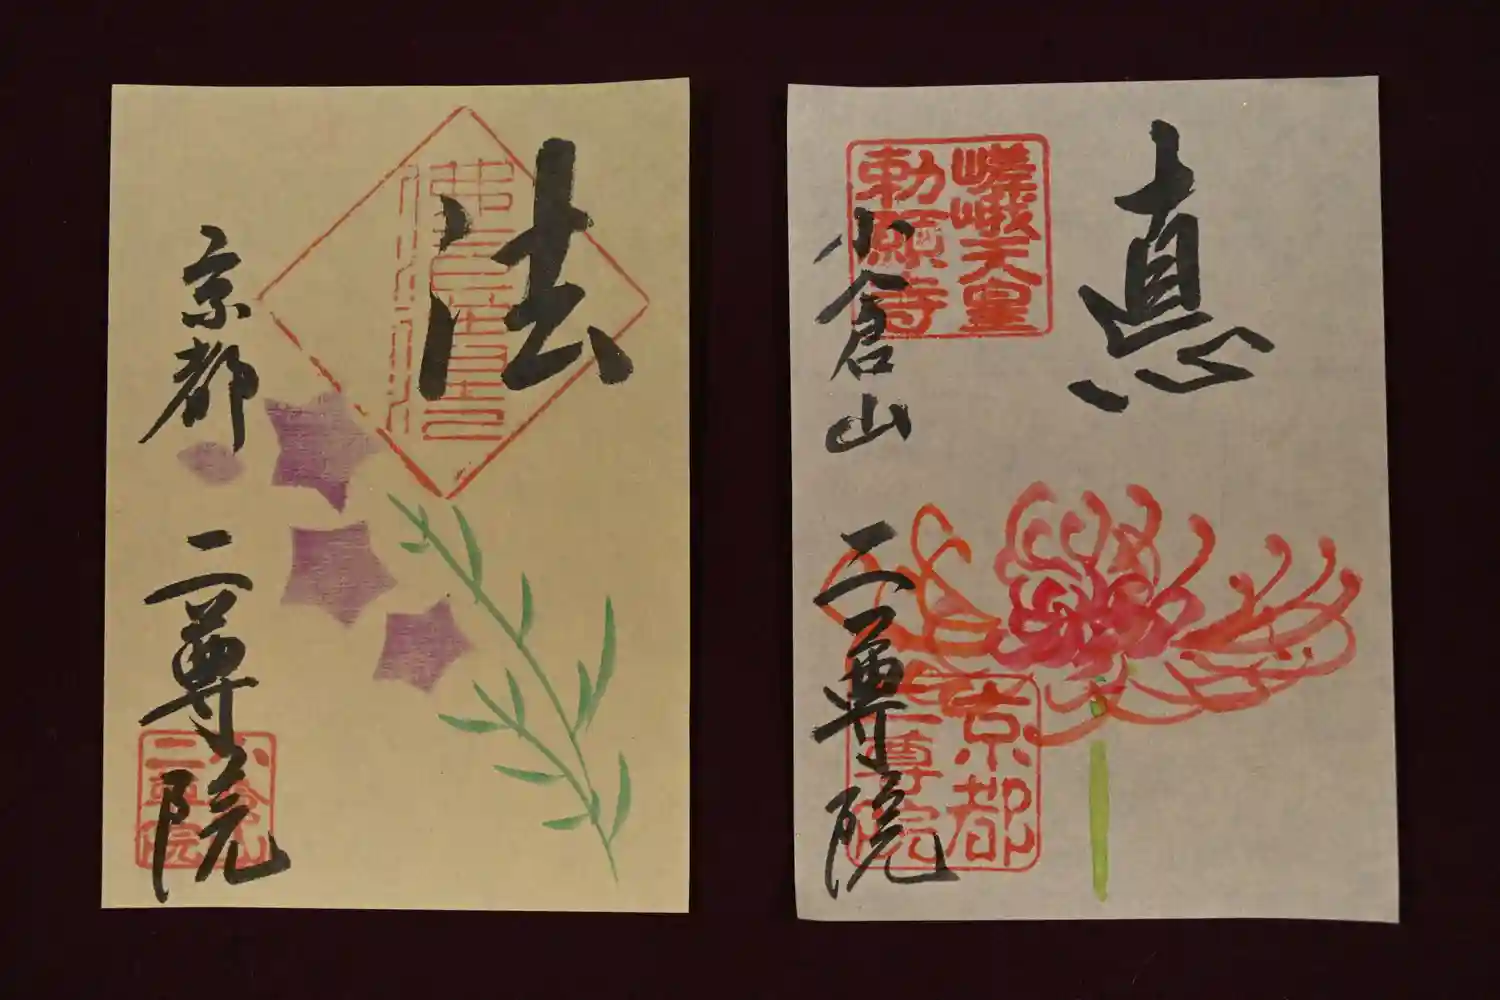 法
京都
二尊院
小倉山
二尊院
悳
嵯峨天皇
勅願寺
小倉山
二尊院
京都
二尊院